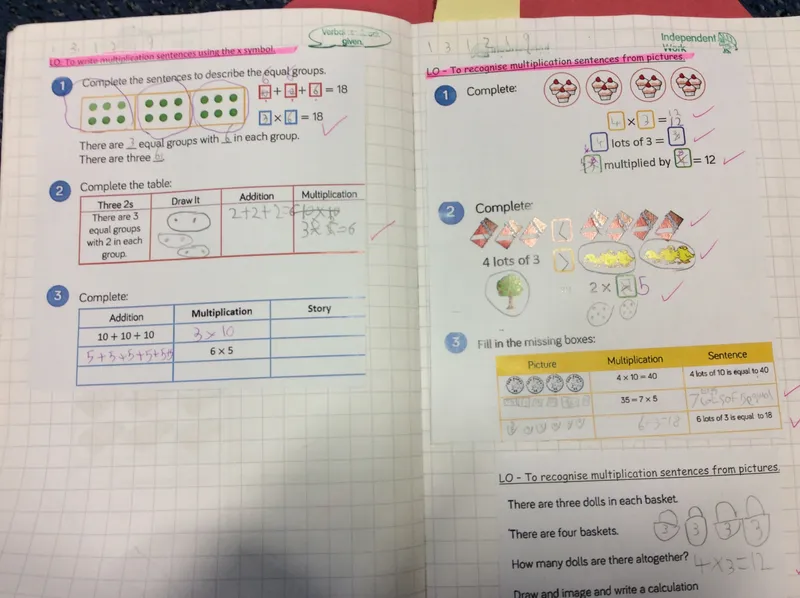 Verbal
given.
LO: To write multiplication sentences using the x symbol.
1 Complete the sentences to describe the equal groups.
+ + 6 = 18
3 × 6 = 18
There are 3 equal groups with 6 in each group.
There are three 6.
2 Complete the table:
Three 2s Draw It Addition Multiplication
There are 3 equal groups with 2 in each group.
2+2+2=6
3 × =6
3 Complete:
Addition Multiplication Story
10 + 10 + 10 3 × 10
5+5+5+5+5+5 6 × 5
1 3 1 2 1 9
Independent
Work
LO - To recognise multiplication sentences from pictures.
1 Complete:
4 × 3 = 12
4 lots of 3 =
multiplied by = 12
2 Complete:
<
4 lots of 3 >
2 × 5
3 Fill in the missing boxes:
Picture Multiplication Sentence
4 × 10 = 40 4 lots of 10 is equal to 40
35 = 7 × 5
6 lots of 3 is equal to 18
LO - To recognise multiplication sentences from pictures.
There are three dolls in each basket.
There are four baskets.
3 3 3 3
How many dolls are there altogether? 4×3=12
Draw and image and write a calculation